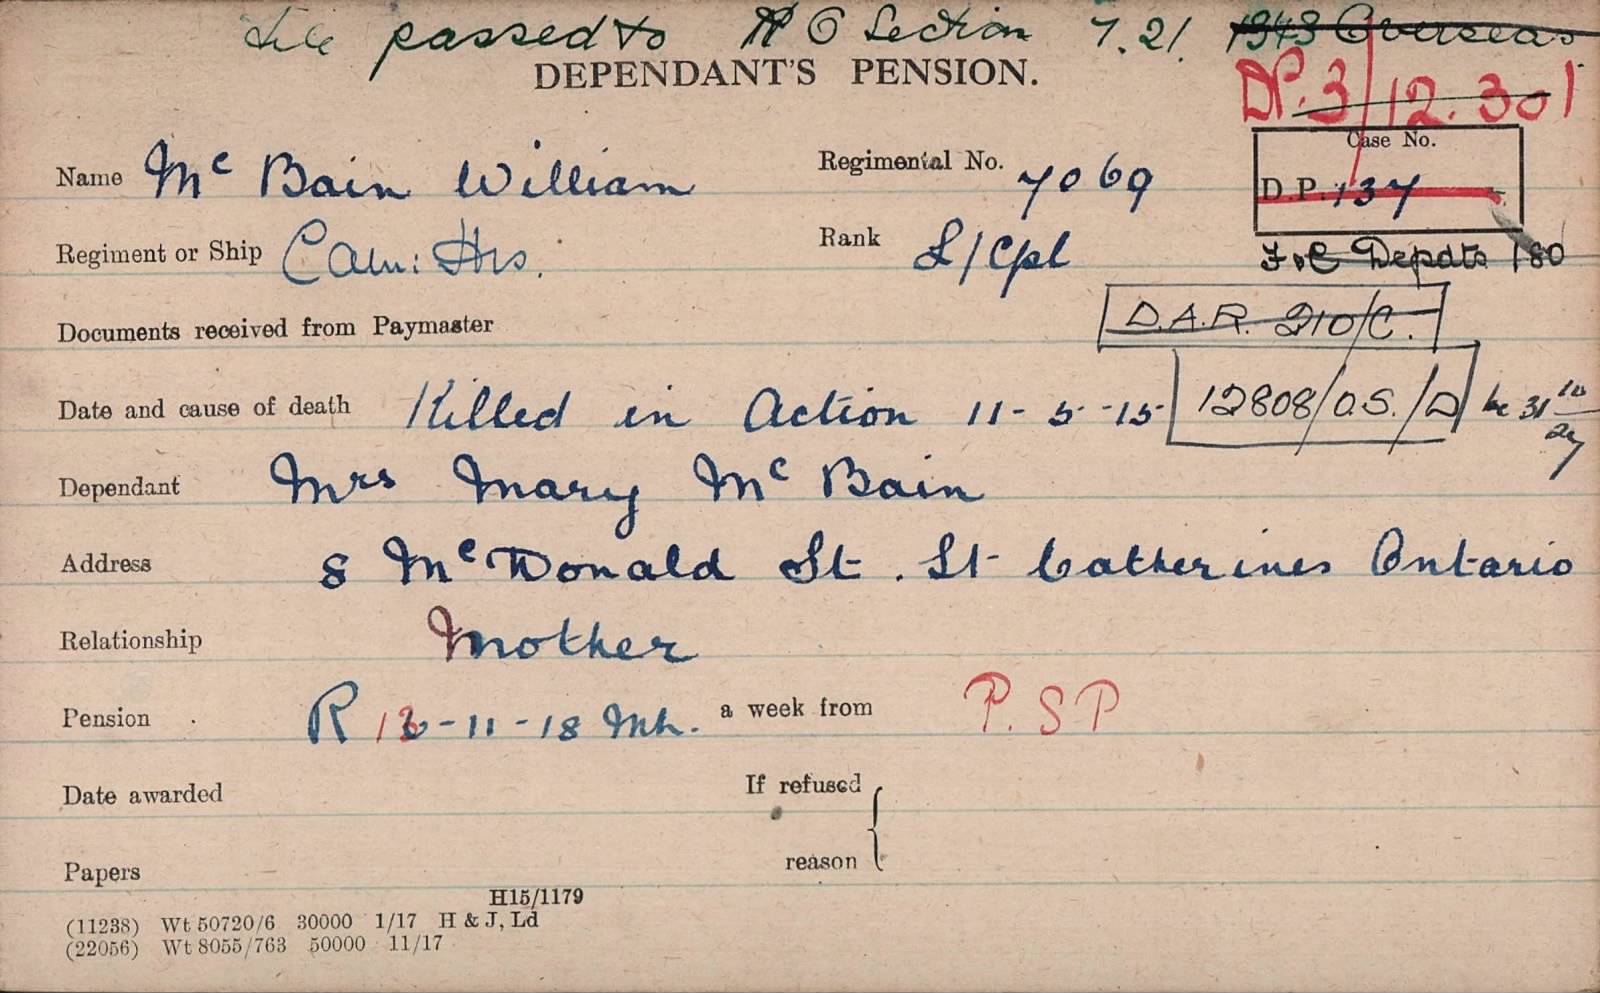 File passed to R O Section 7.21. 1343 Overseas
DEPENDANT'S PENSION.
DP. 3/12. 301
Case No.
D.P. 137
F & C Depdts 180
Name Mc Bain William
Regimental No. 7069
Regiment or Ship Cam: Hrs.
Rank L/Cpl
Documents received from Paymaster
D.A.R. 210/C.
Date and cause of death Killed in Action 11-5-15
12808/O.S./D 31 10/27
Dependant Mrs Mary Mc Bain
Address 8 McDonald St. St Catherines Ontario
Relationship Mother
Pension R 13-11-18 Mh. a week from P.S P
Date awarded
If refused
reason
Papers
H15/1179
(11238) Wt 50720/6 30000 1/17 H & J, Ld
(22056) Wt 8055/763 50000 11/17